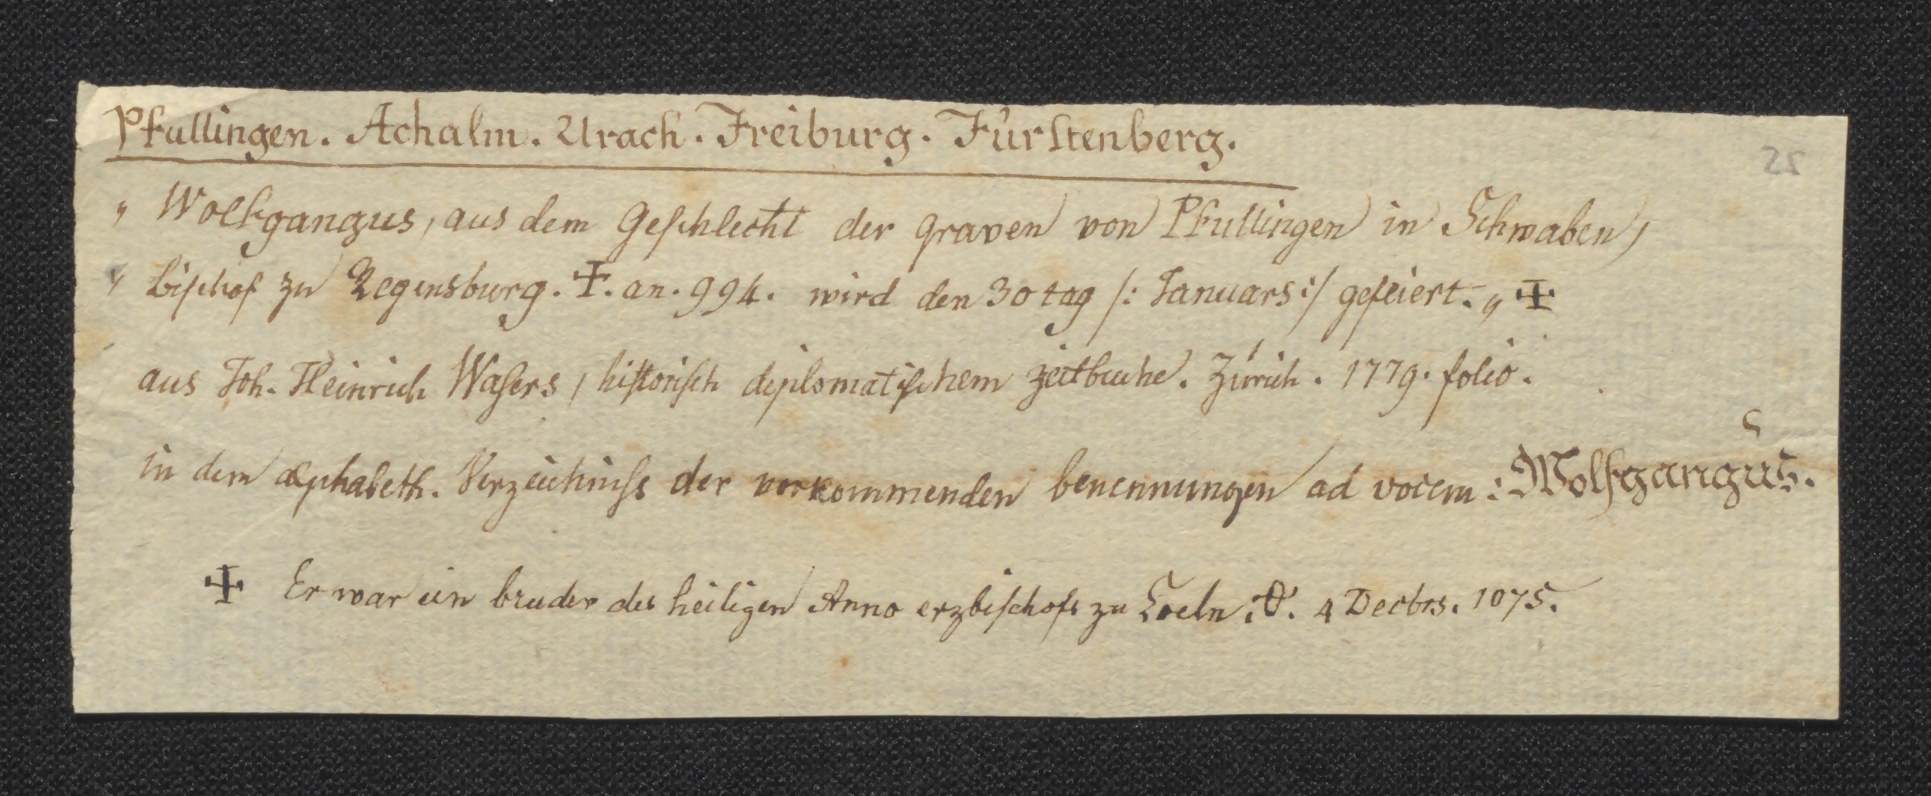 Pfullingen. Achalm. Urach. Freiburg. Fürstenberg.
25
„ Wolfgangus, aus dem Geschlecht der graven von Pfullingen in Schwaben,
„ bischof zu Regensburg. ✠. an. 994. wird den 30 tag /: Januars :/ gefeiert. „ ✠
aus Joh. Heinrich Wasers, historisch diplomatischem zeitbuche. Zürich. 1779. folio.
in dem alphabeth. Verzeichnisse der vorkommenden benennungen ad vocem: Wolfgangus.
✠ Er war ein bruder des heiligen Anno erzbischofs zu Coeln. 4 Decbrs. 1075.